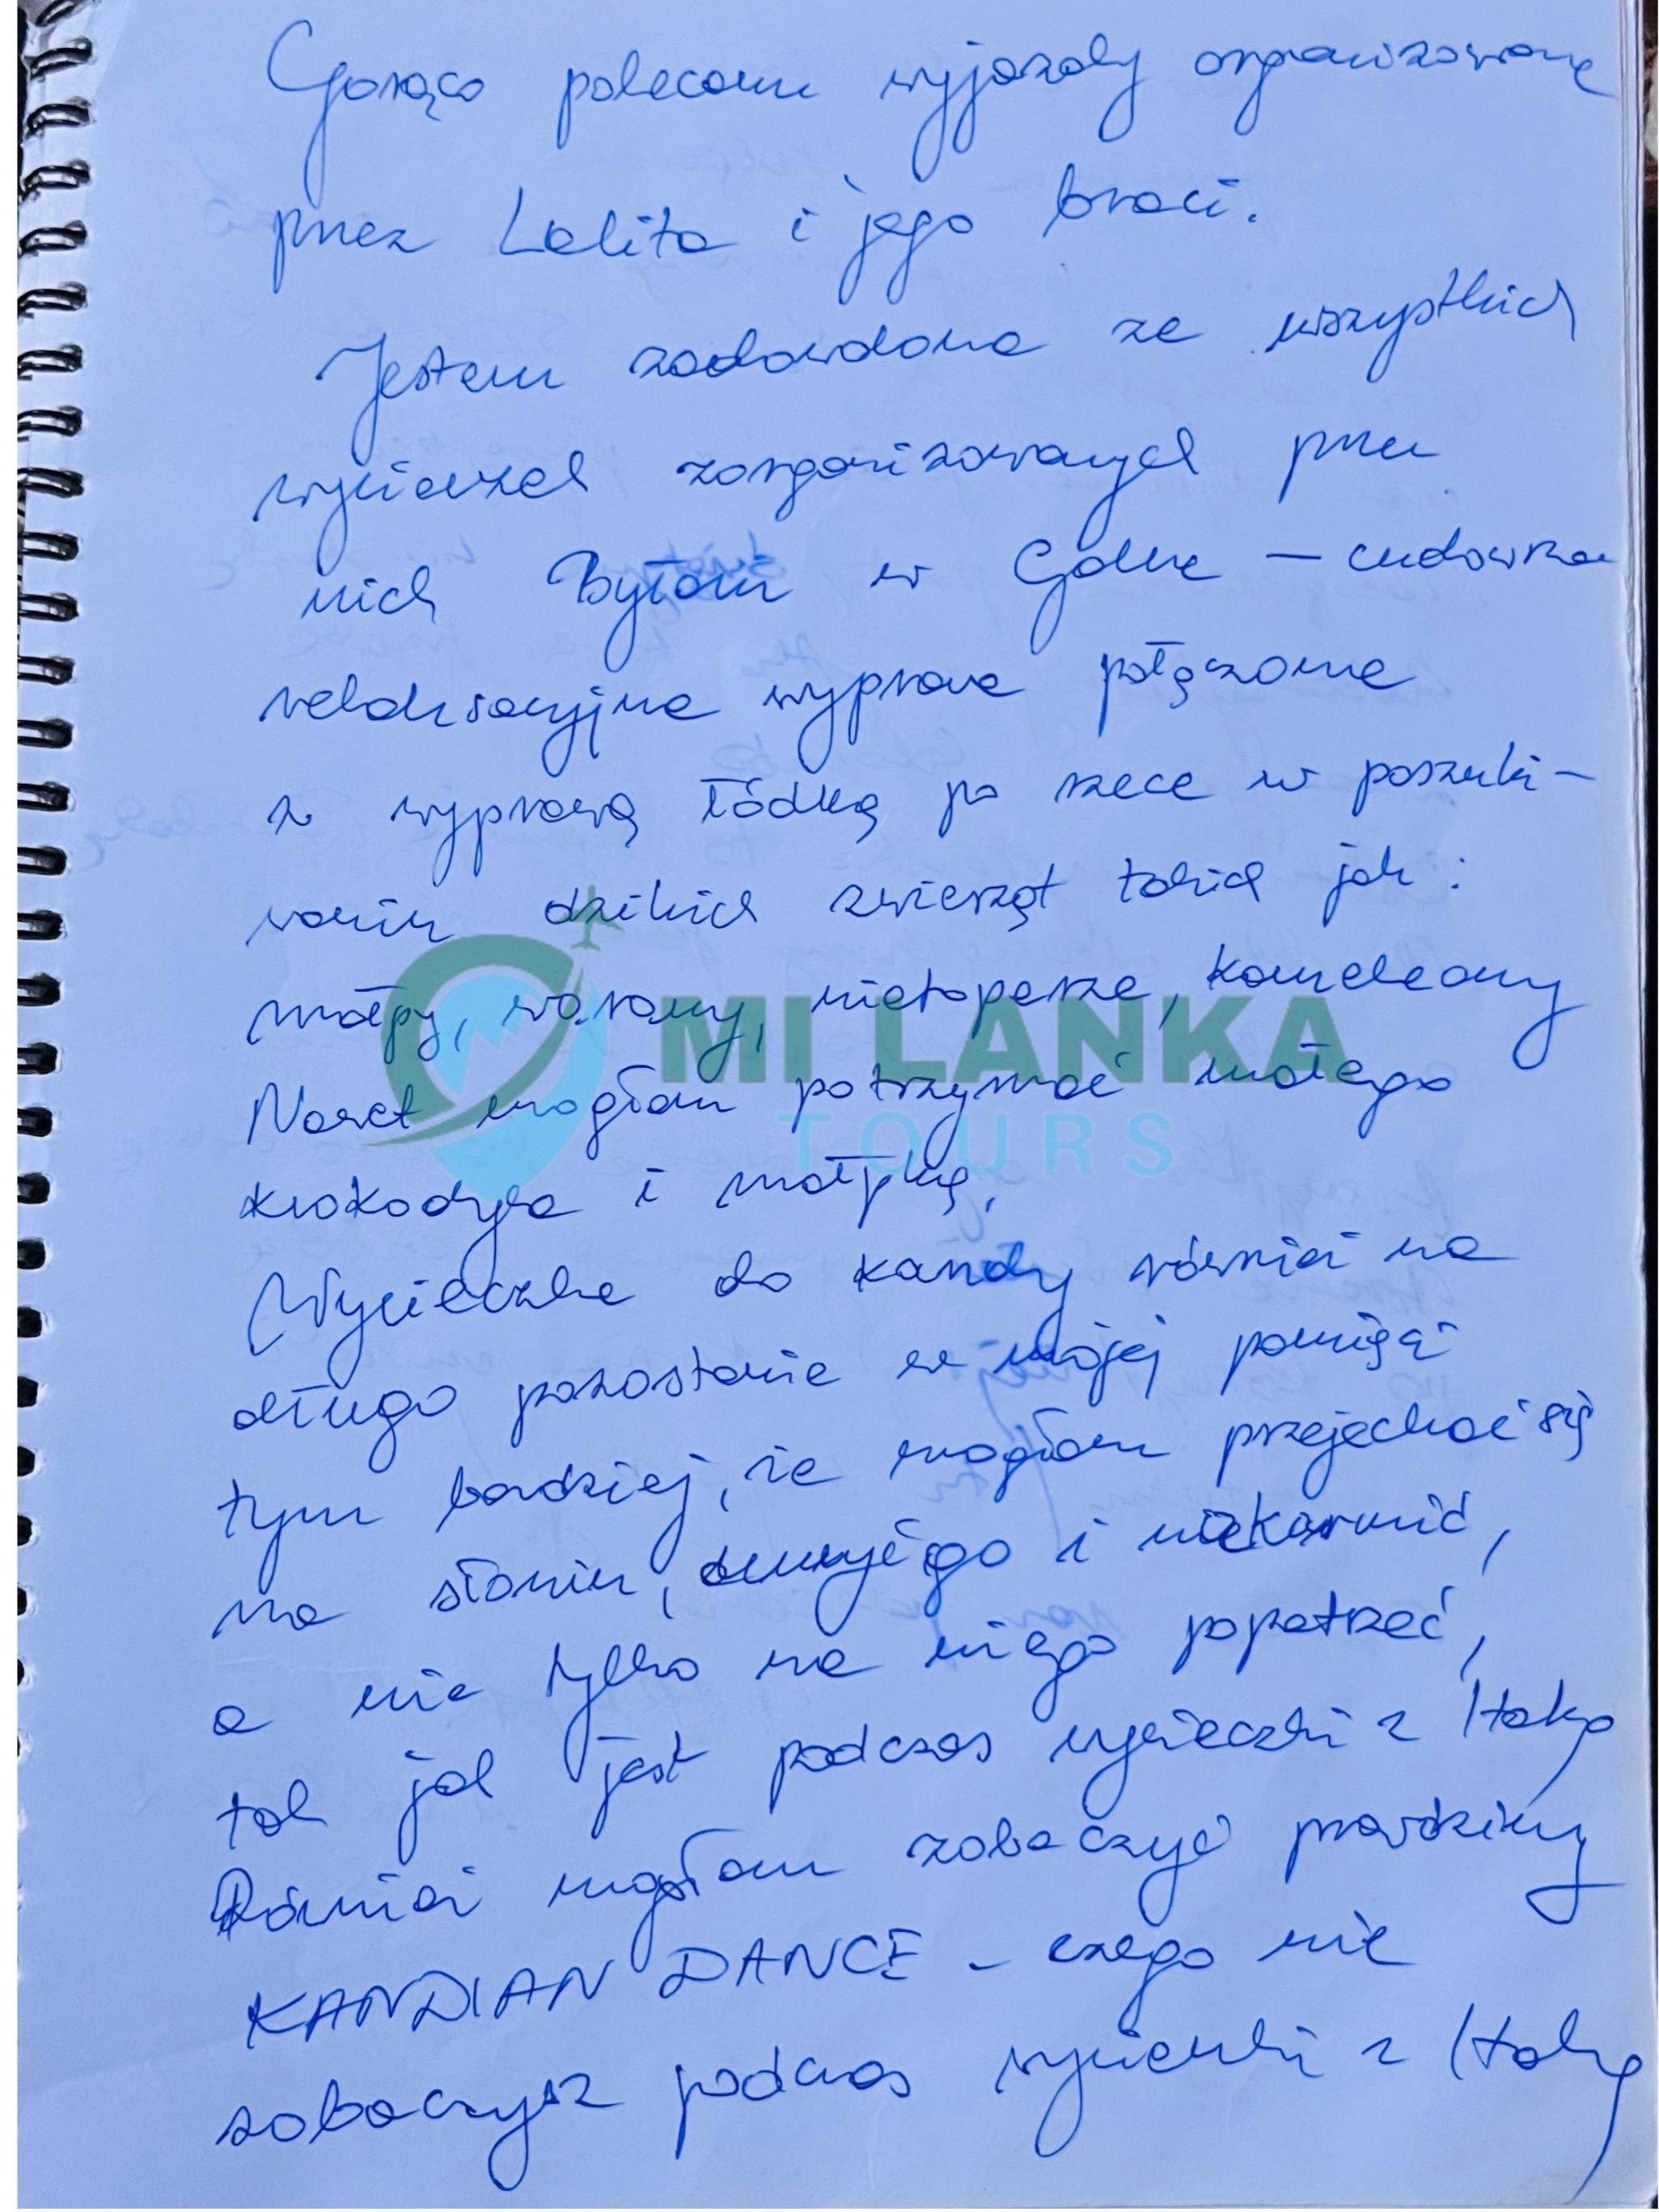 Gorąco polecam wyjazdy organizowane
przez Lalita i jego braci.
Jestem zadowolona ze wszystkich
wycieczek zorganizowanych przez
nich Byłam w Galle – cudowna
relaksacyjna wyprawa połączona
z wyprawą łódką po rzece w poszuki-
waniu dzikich zwierząt takich jak:
małpy, warany, nietoperze, kameleony
MI LANKA
Nawet mogłam potrzymać małego
TOURS
krokodyla i małpkę.
Wycieczka do Kandy również na
długo pozostanie w mojej pamięci
tym bardziej, że mogłam przejechać się
na słoniu, umyć go i nakarmić,
a nie tylko na niego popatrzeć,
tak jak jest podczas wycieczki z Itaką
Również mogłam zobaczyć prawdziwy
KANDIAN DANCE – czego nie
zobaczysz podczas wycieczki z Itaką